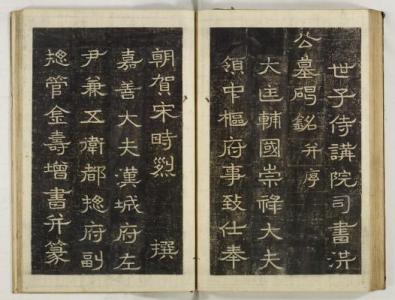 世子侍講院司書洪
公墓碣銘 并序
大匡輔國崇祿大夫
領中樞府事致仕奉
朝賀宋時烈 撰
嘉善大夫漢城府左
尹兼五衛都摠府副
摠管金壽增書并篆